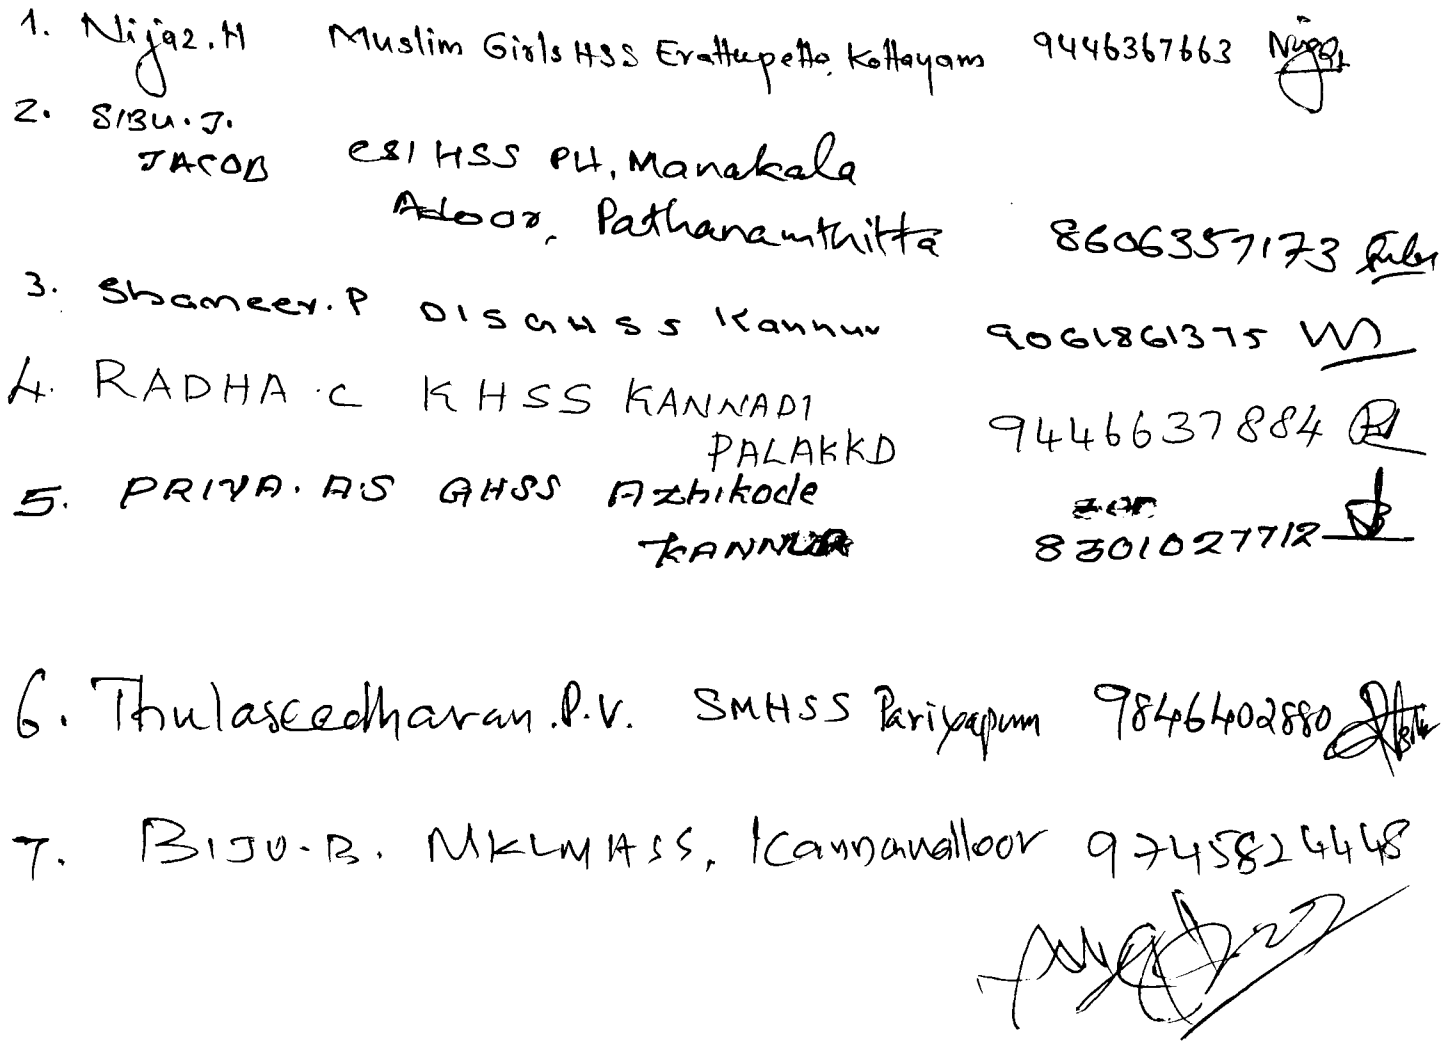 1. Nijaz.H Muslim Girls HSS Erattupetta, Kottayam 9446367663
2. SIBU.J.
JACOB CSI HSS PH, Manakala
Adoor, Pathanamthitta 8606357173
3. Shameer.P DISGHSS Kannur 9061861375
4. RADHA.C KHSS KANNADI 9446637884
PALAKKD
5. PRIYA.A.S GHSS Azhikode
KANNUR 8301027712
6. Thulaseedharan.P.V. SMHSS Pariyapuram 9846402880
7. BIJU.B. MKLMHSS, Kannanalloor 9745824448